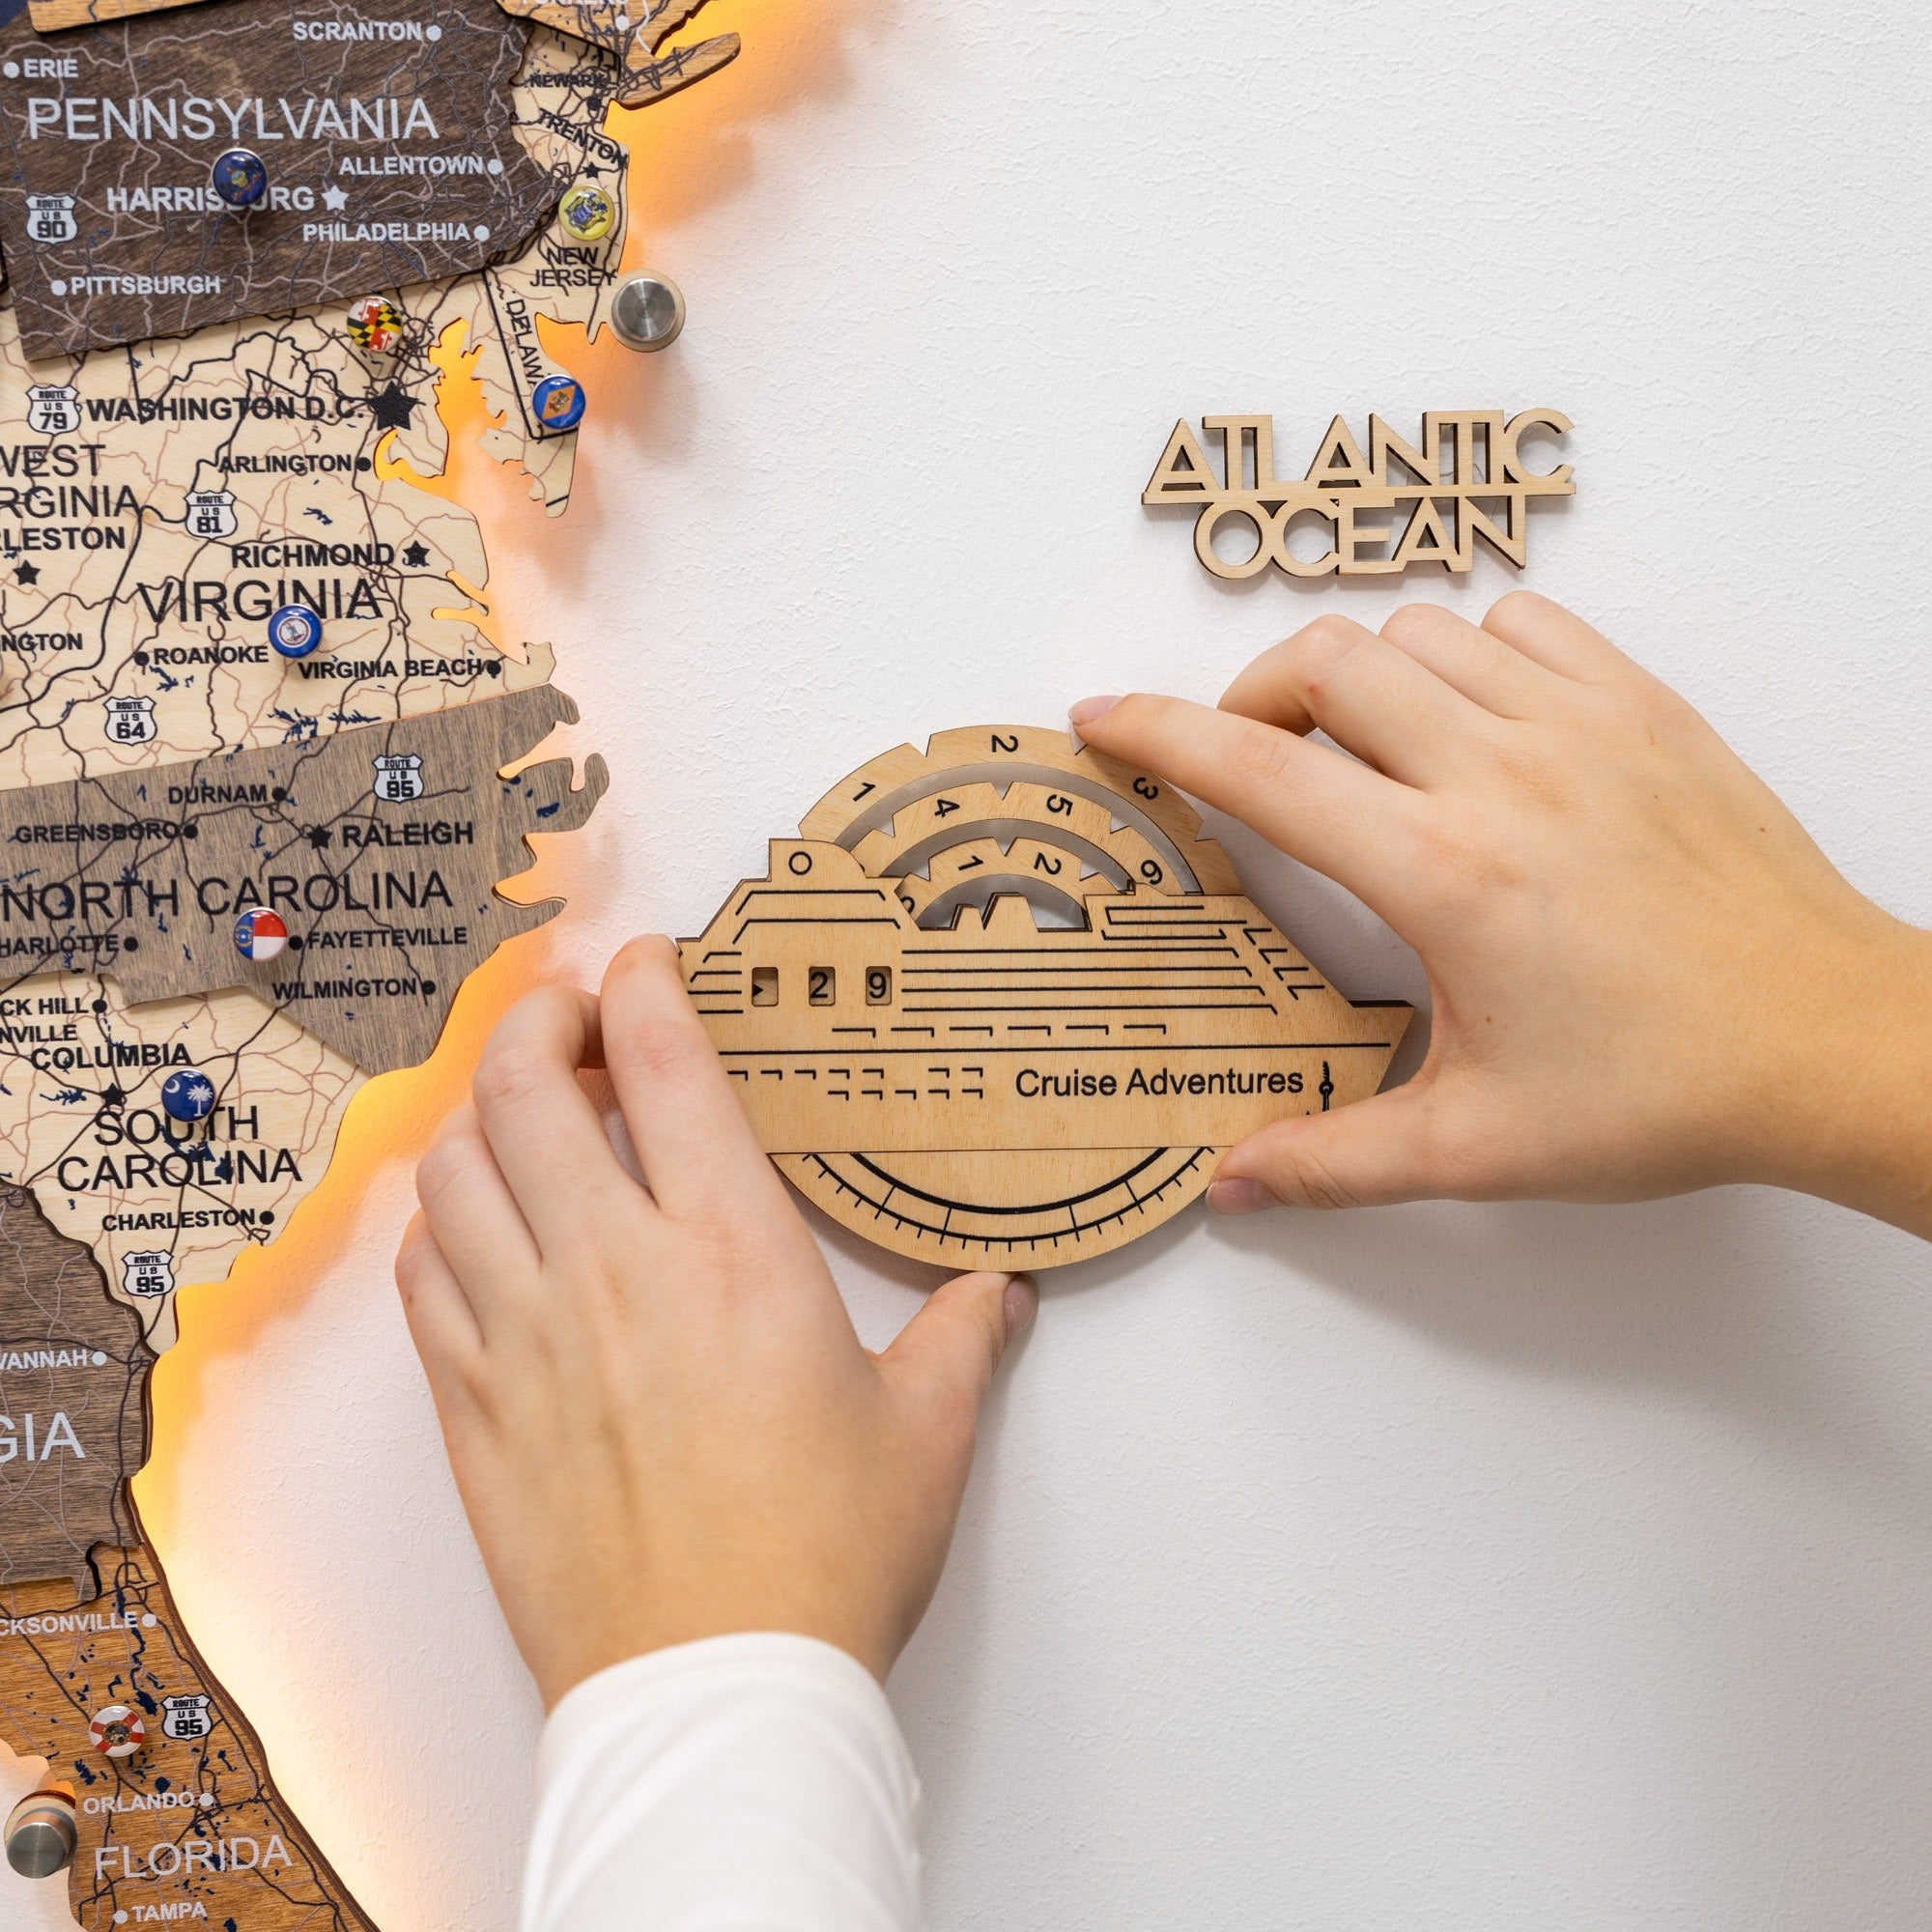 SCRANTON
ERIE
NEWARK
PENNSYLVANIA
TRENTON
ALLENTOWN
HARRISBURG
ROUTE
US
90
PHILADELPHIA
NEW
JERSEY
PITTSBURGH
DELAW
ROUTE
US
79
WASHINGTON D.C.
ATLANTIC
OCEAN
WEST
RGINIA
ARLINGTON
ROUTE
US
81
RLESTON
RICHMOND
VIRGINIA
NGTON
ROANOKE
VIRGINIA BEACH
ROUTE
US
64
ROUTE
US
95
DURNAM
GREENSBORO
RALEIGH
NORTH CAROLINA
HARLOTTE
FAYETTEVILLE
WILMINGTON
1 2 3
4 5 6
1 2
2 9
Cruise Adventures
CK HILL
NVILLE
COLUMBIA
SOUTH
CAROLINA
CHARLESTON
ROUTE
US
95
VANNAH
GIA
CKSONVILLE
ROUTE
US
95
ORLANDO
FLORIDA
TAMPA